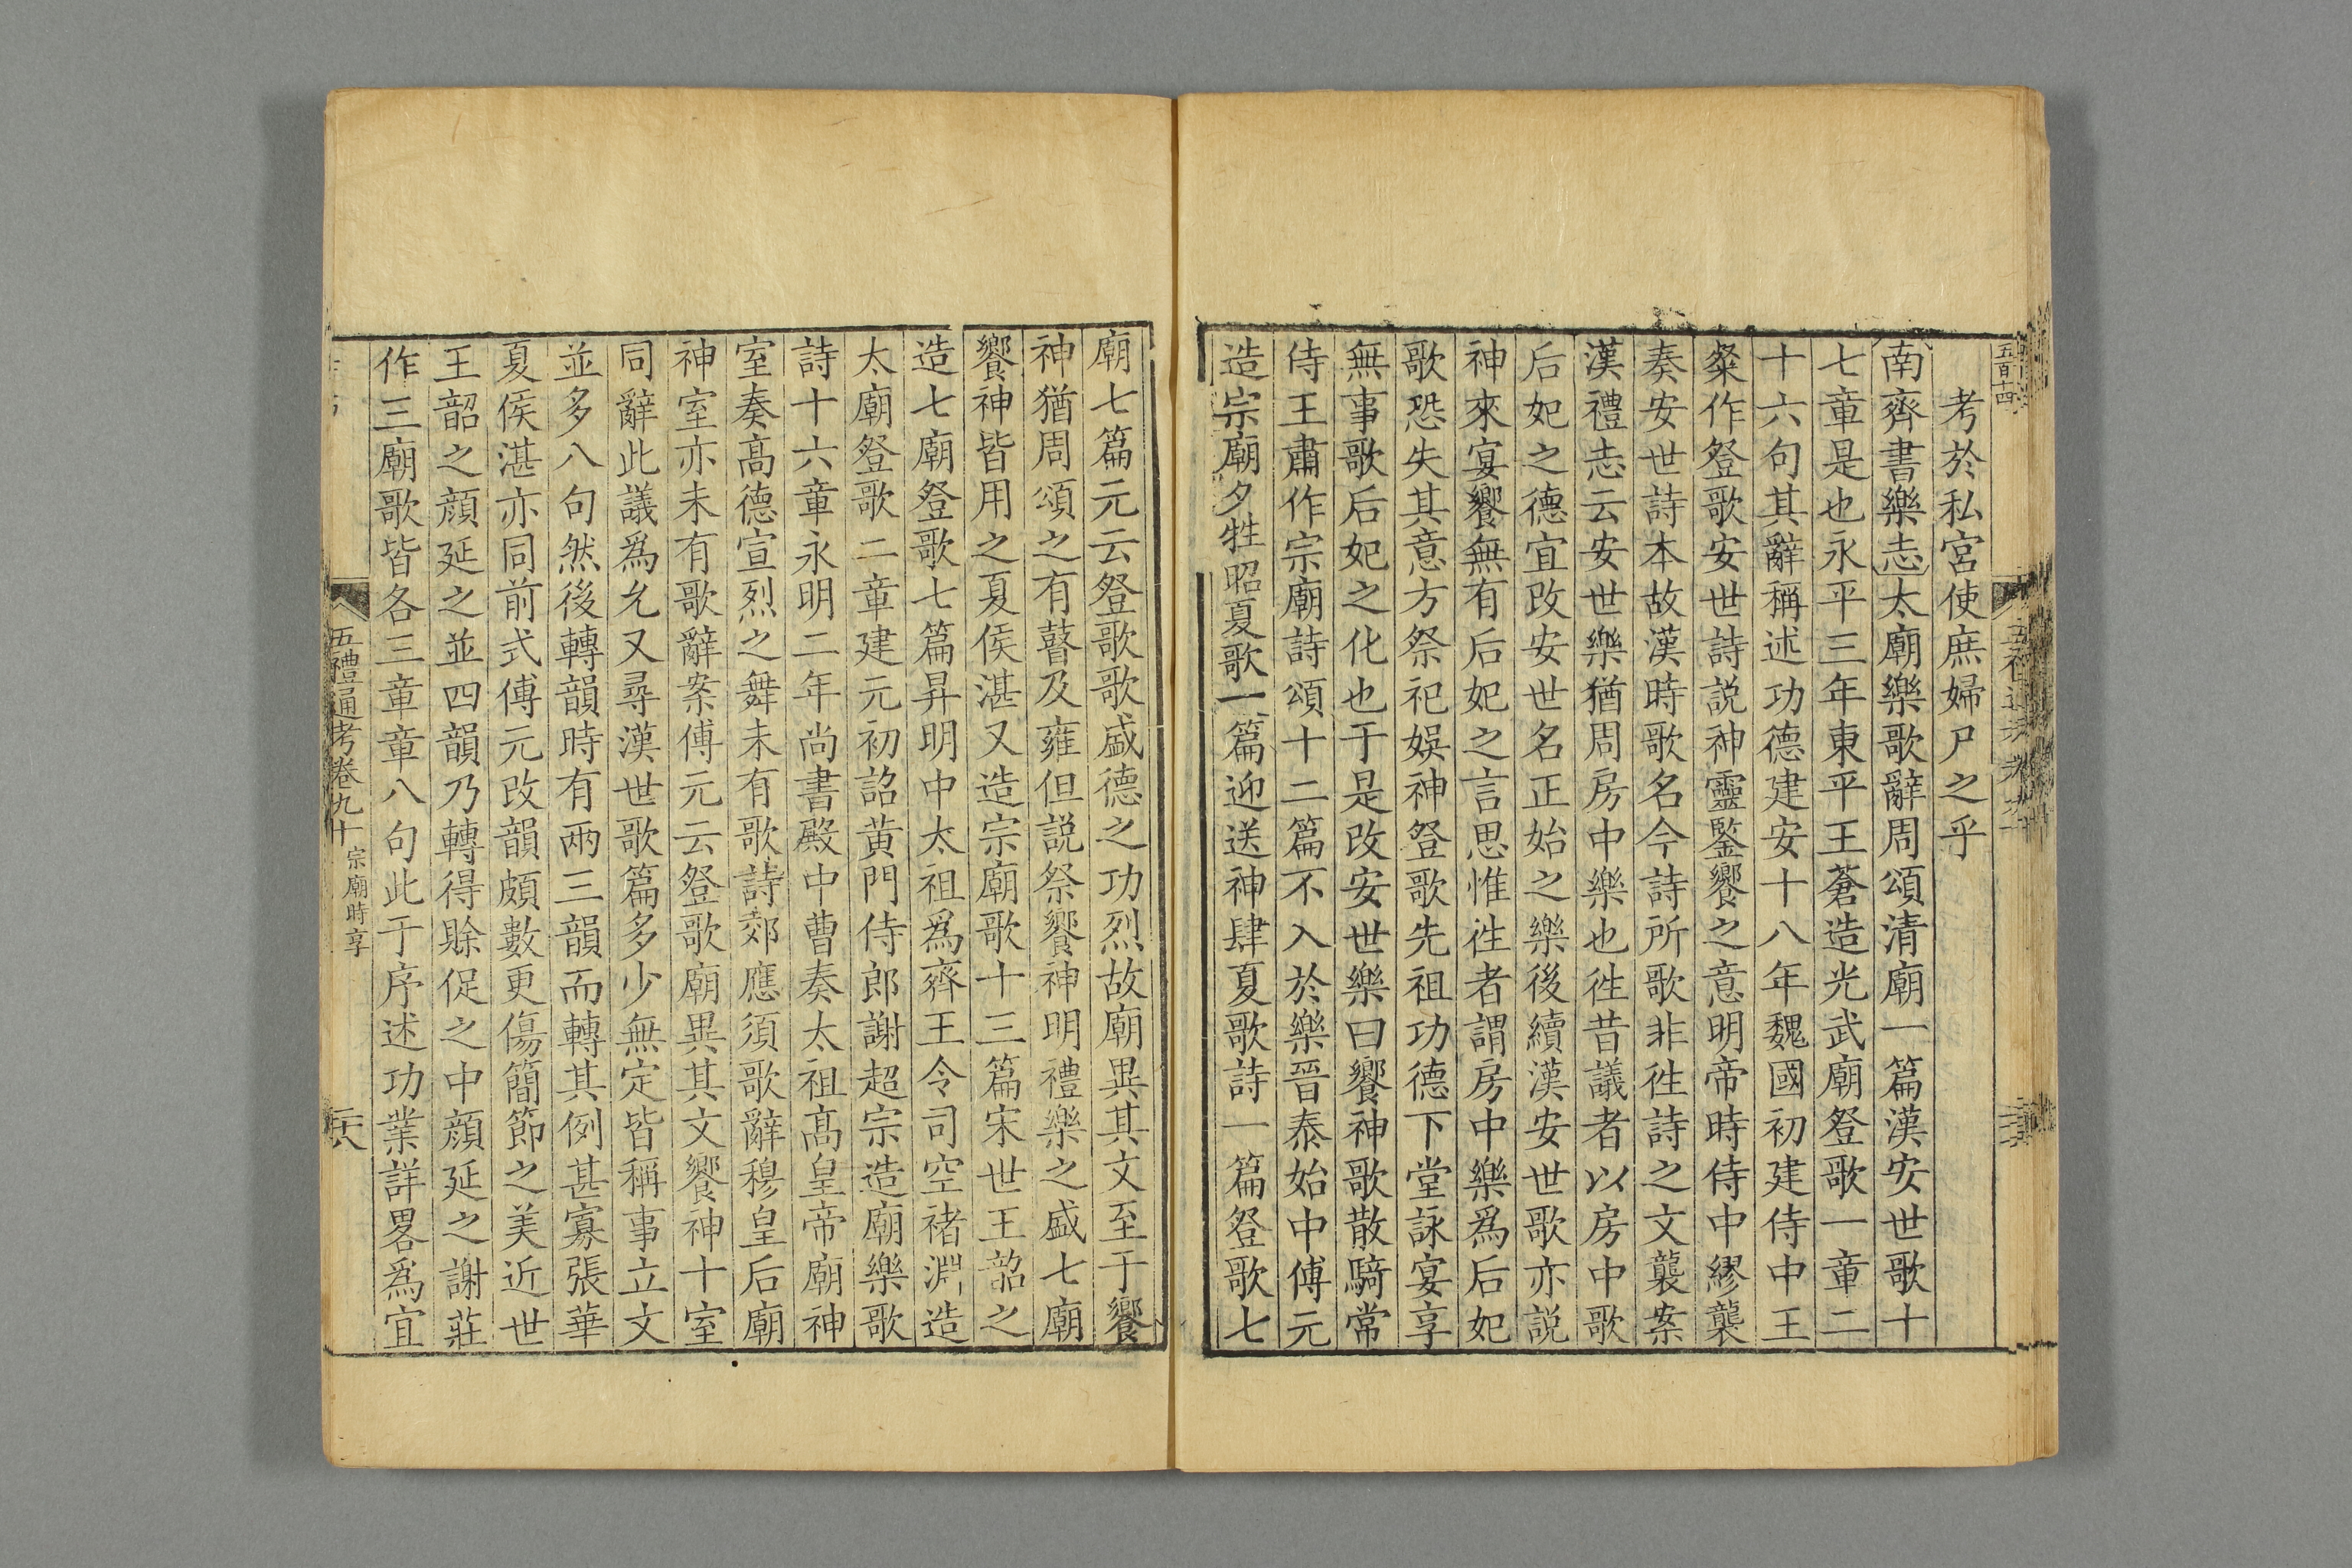 五百十四
考於私宮使庶婦尸之乎
南齊書樂志太廟樂歌辭周頌清廟一篇漢安世歌十
七章是也永平三年東平王蒼造光武廟登歌一章二
十六句其辭稱述功德建安十八年魏國初建侍中王
粲作登歌安世詩説神靈鑒饗之意明帝時侍中繆襲
奏安世詩本故漢時歌名今詩所歌非徃詩之文襲案
漢禮志云安世樂猶周房中樂也徃昔議者以房中歌
后妃之德宜改安世名正始之樂後續漢安世歌亦説
神來宴饗無有后妃之言思惟徃者謂房中樂爲后妃
歌恐失其意方祭祀娛神登歌先祖功德下堂詠宴享
無事歌后妃之化也于是改安世樂曰饗神歌散騎常
侍王肅作宗廟詩頌十二篇不入於樂晉泰始中傅元
造宗廟夕牲昭夏歌一篇迎送神肆夏歌詩一篇登歌七
廟七篇元云登歌歌盛德之功烈故廟異其文至于饗
神猶周頌之有瞽及雍但説祭饗神明禮樂之盛七廟
饗神皆用之夏侯湛又造宗廟歌十三篇宋世王韶之
造七廟登歌七篇昇明中太祖爲齊王令司空褚淵造
太廟登歌二章建元初詔黄門侍郎謝超宗造廟樂歌
詩十六章永明二年尚書殿中曹奏太祖髙皇帝廟神
室奏髙德宣烈之舞未有歌詩郊應須歌辭穆皇后廟
神室亦未有歌辭案傅元云登歌廟異其文饗神十室
同辭此議爲允又尋漢世歌篇多少無定皆稱事立文
並多八句然後轉韻時有兩三韻而轉其例甚寡張華
夏侯湛亦同前式傅元改韻頗數更傷簡節之美近世
王韶之顔延之並四韻乃轉得賒促之中顔延之謝莊
作三廟歌皆各三章章八句此于序述功業詳畧爲宜
五禮通考卷九十 宗廟時享
二六